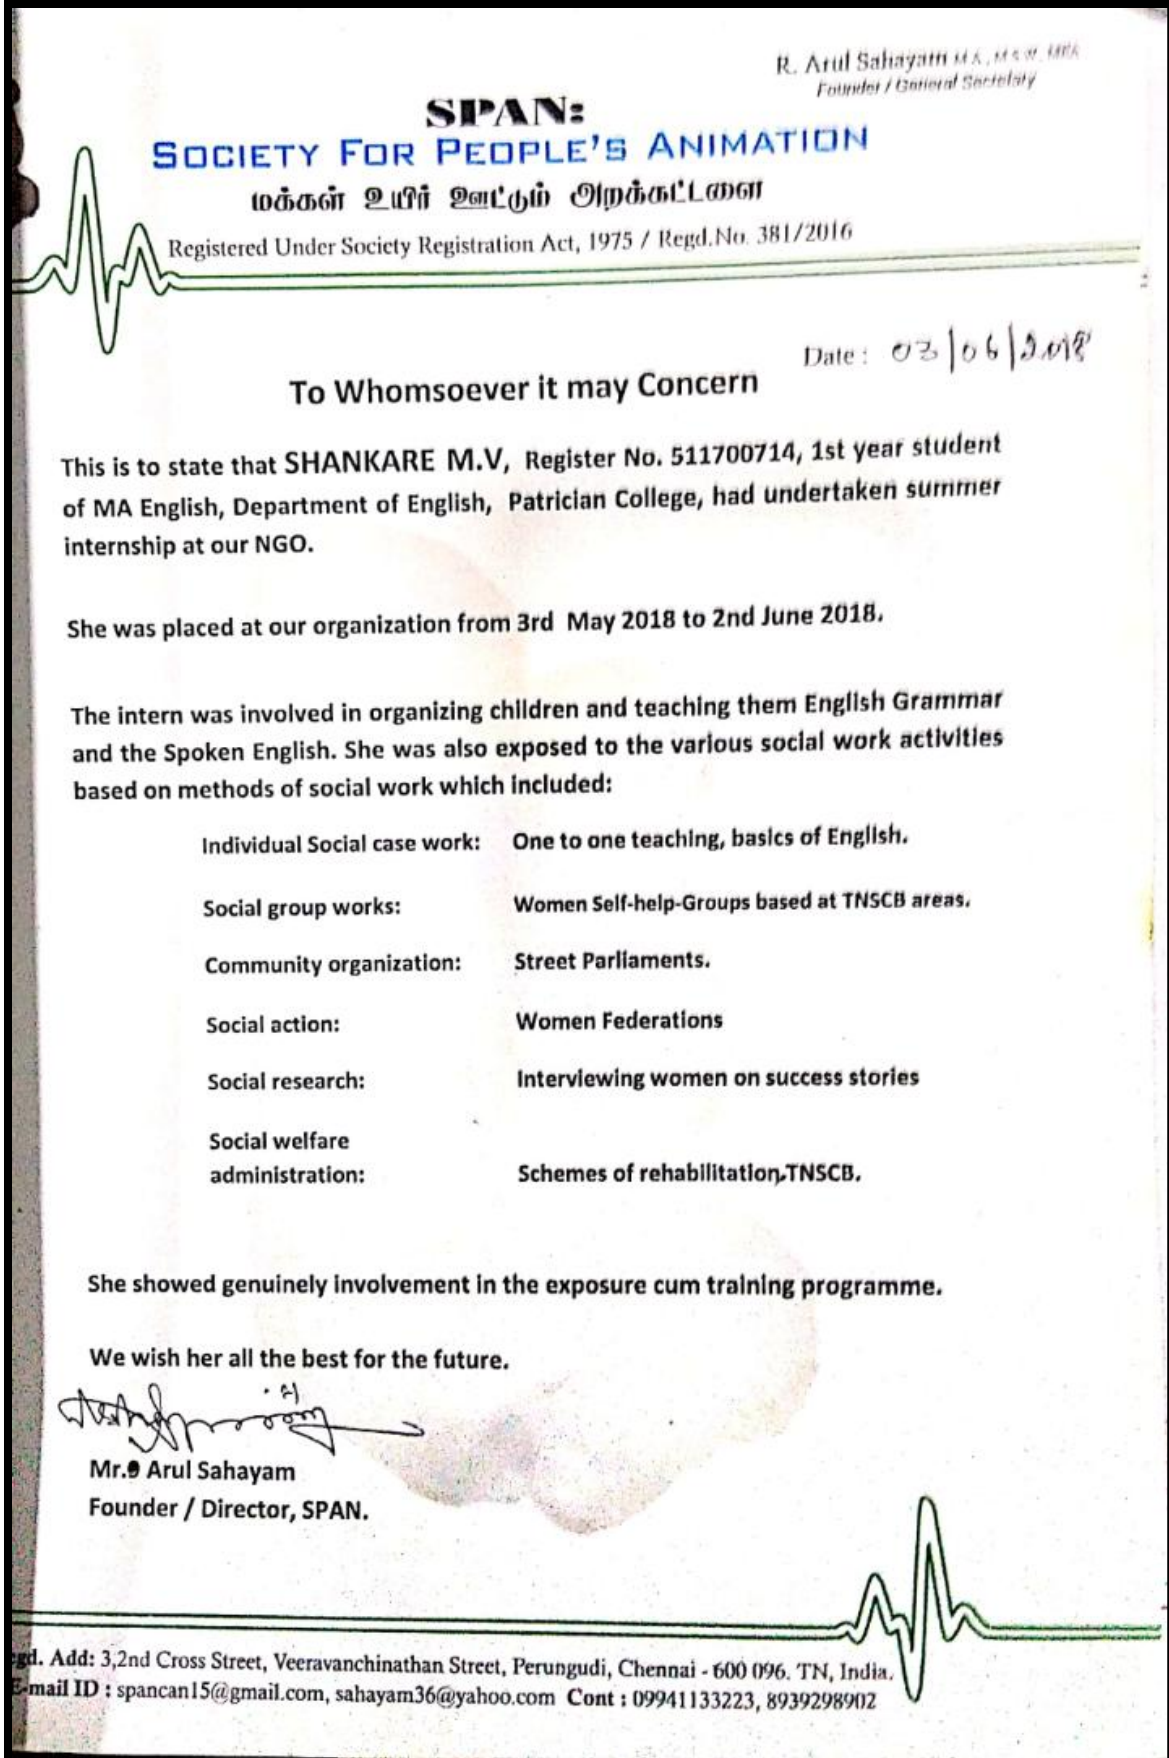 R. Arul Sahayam M.A., M.S.W, MBA
Founder / General Secretary
SPAN:
SOCIETY FOR PEOPLE'S ANIMATION
மக்கள் உயிர் ஊட்டும் அறக்கட்டளை
Registered Under Society Registration Act, 1975 / Regd.No. 381/2016
Date : 03/06/2018
To Whomsoever it may Concern
This is to state that SHANKARE M.V, Register No. 511700714, 1st year student
of MA English, Department of English, Patrician College, had undertaken summer
internship at our NGO.
She was placed at our organization from 3rd May 2018 to 2nd June 2018.
The intern was involved in organizing children and teaching them English Grammar
and the Spoken English. She was also exposed to the various social work activities
based on methods of social work which included:
Individual Social case work: One to one teaching, basics of English.
Social group works: Women Self-help-Groups based at TNSCB areas.
Community organization: Street Parliaments.
Social action: Women Federations
Social research: Interviewing women on success stories
Social welfare
administration: Schemes of rehabilitation,TNSCB.
She showed genuinely involvement in the exposure cum training programme.
We wish her all the best for the future.
Mr. Arul Sahayam
Founder / Director, SPAN.
gd. Add: 3,2nd Cross Street, Veeravanchinathan Street, Perungudi, Chennai - 600 096. TN, India.
E-mail ID : spancan15@gmail.com, sahayam36@yahoo.com Cont : 09941133223, 8939298902